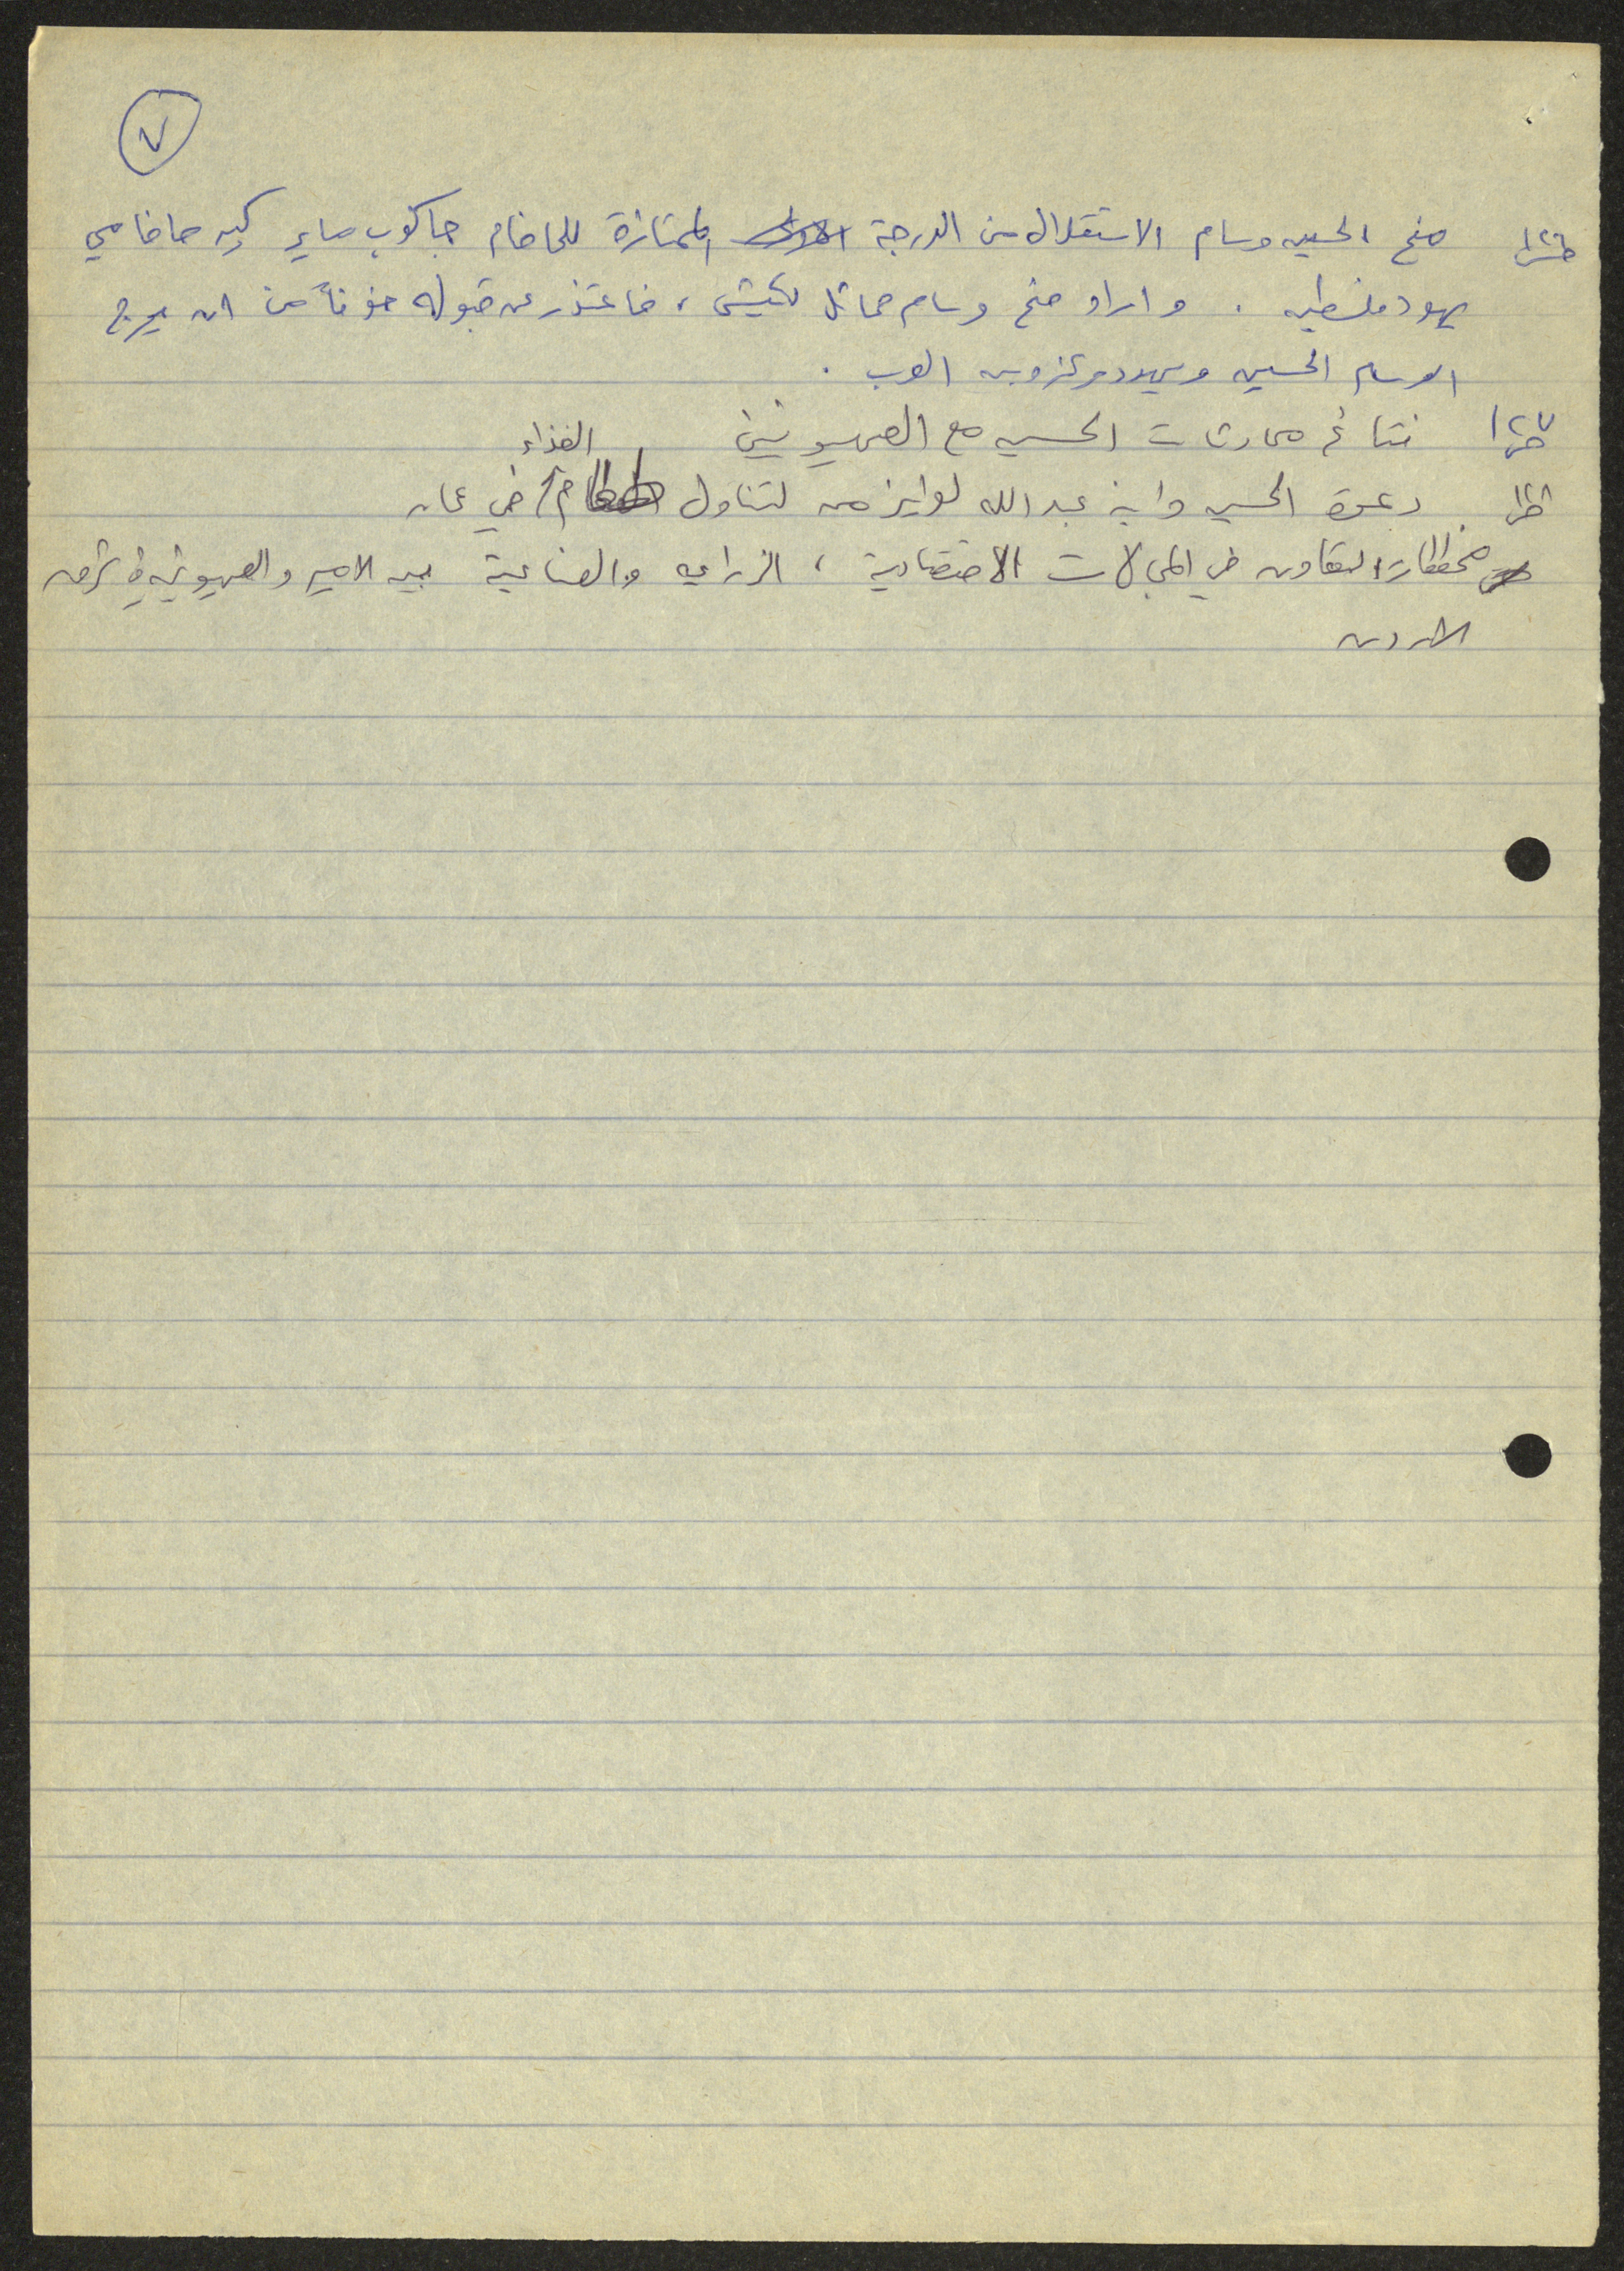 ٧
منح الحسين وسام الاستقلال من الدرجة الممتازة للحاخام جاكوب ماير كبير حاخامي
يهود فلسطين . واراد منح وسام مماثل لكيش ، فاعتذر عن قبوله خوفاً من ان يحرج
الوسام الحسين ويهدد مركزه بين العرب .
نتائج محادثات الحسين مع الصهيونيين
الغذاء
دعوة الحسين وابنه عبد الله لوايزمن لتناول في عمان
مخططات التعاون في المجالات الاقتصادية ، الزراعية والصناعية بين الامير والصهيونيين في شرق
الاردن